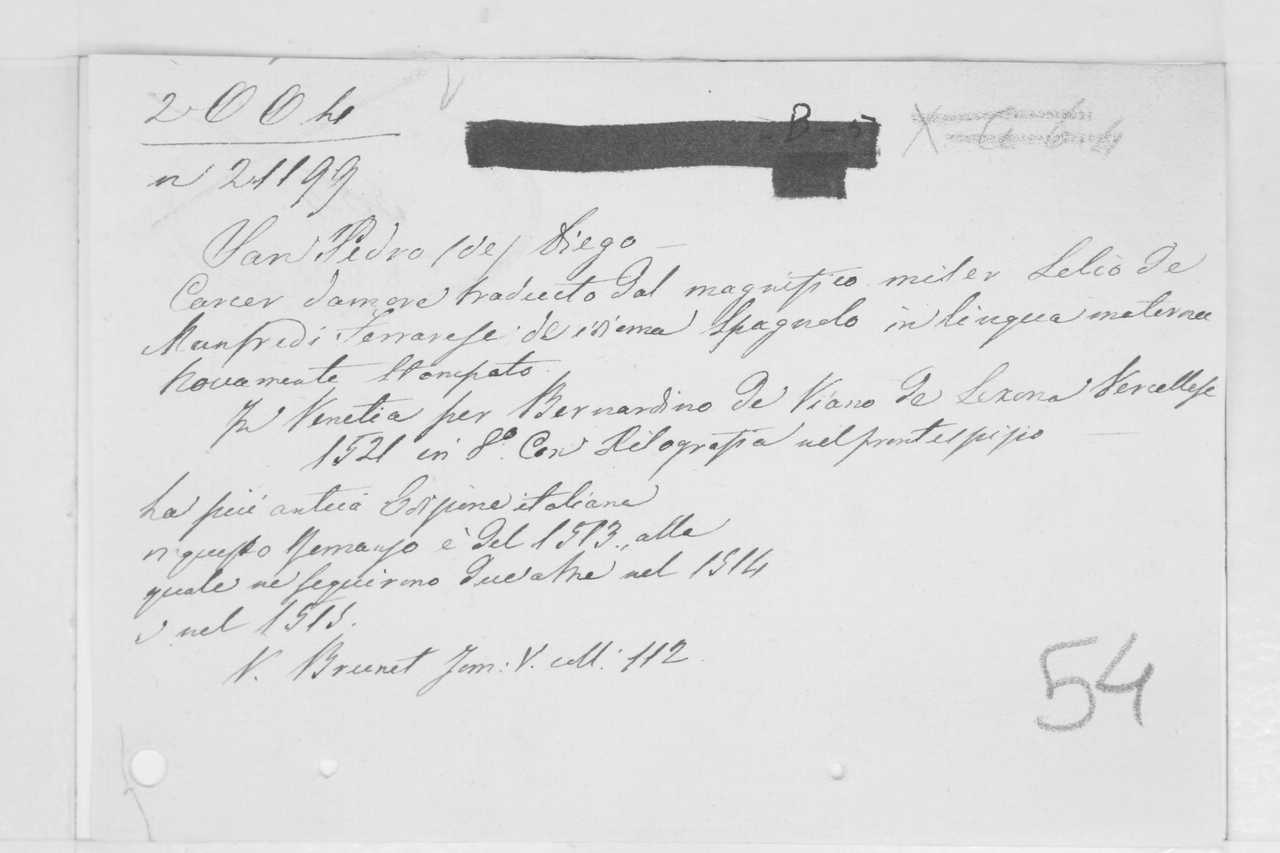 n 21199
San Pedro (de) Diego
Carcer damore traducto dal magnifico miser Lelio de
Manfredi Ferrarese de idioma Spagnolo in lingua materna
novamente stampato
In Venetia per Bernardino de Viano de Lexona Vercellese
1521 in 8º. Con Silografia nel frontespizio
La più antica Edizione italiana
di questo Romanzo è del 1513., alla
quale ne seguirono due altre nel 1514
e nel 1515.
V. Brunet Tom: V. coll: 112
54